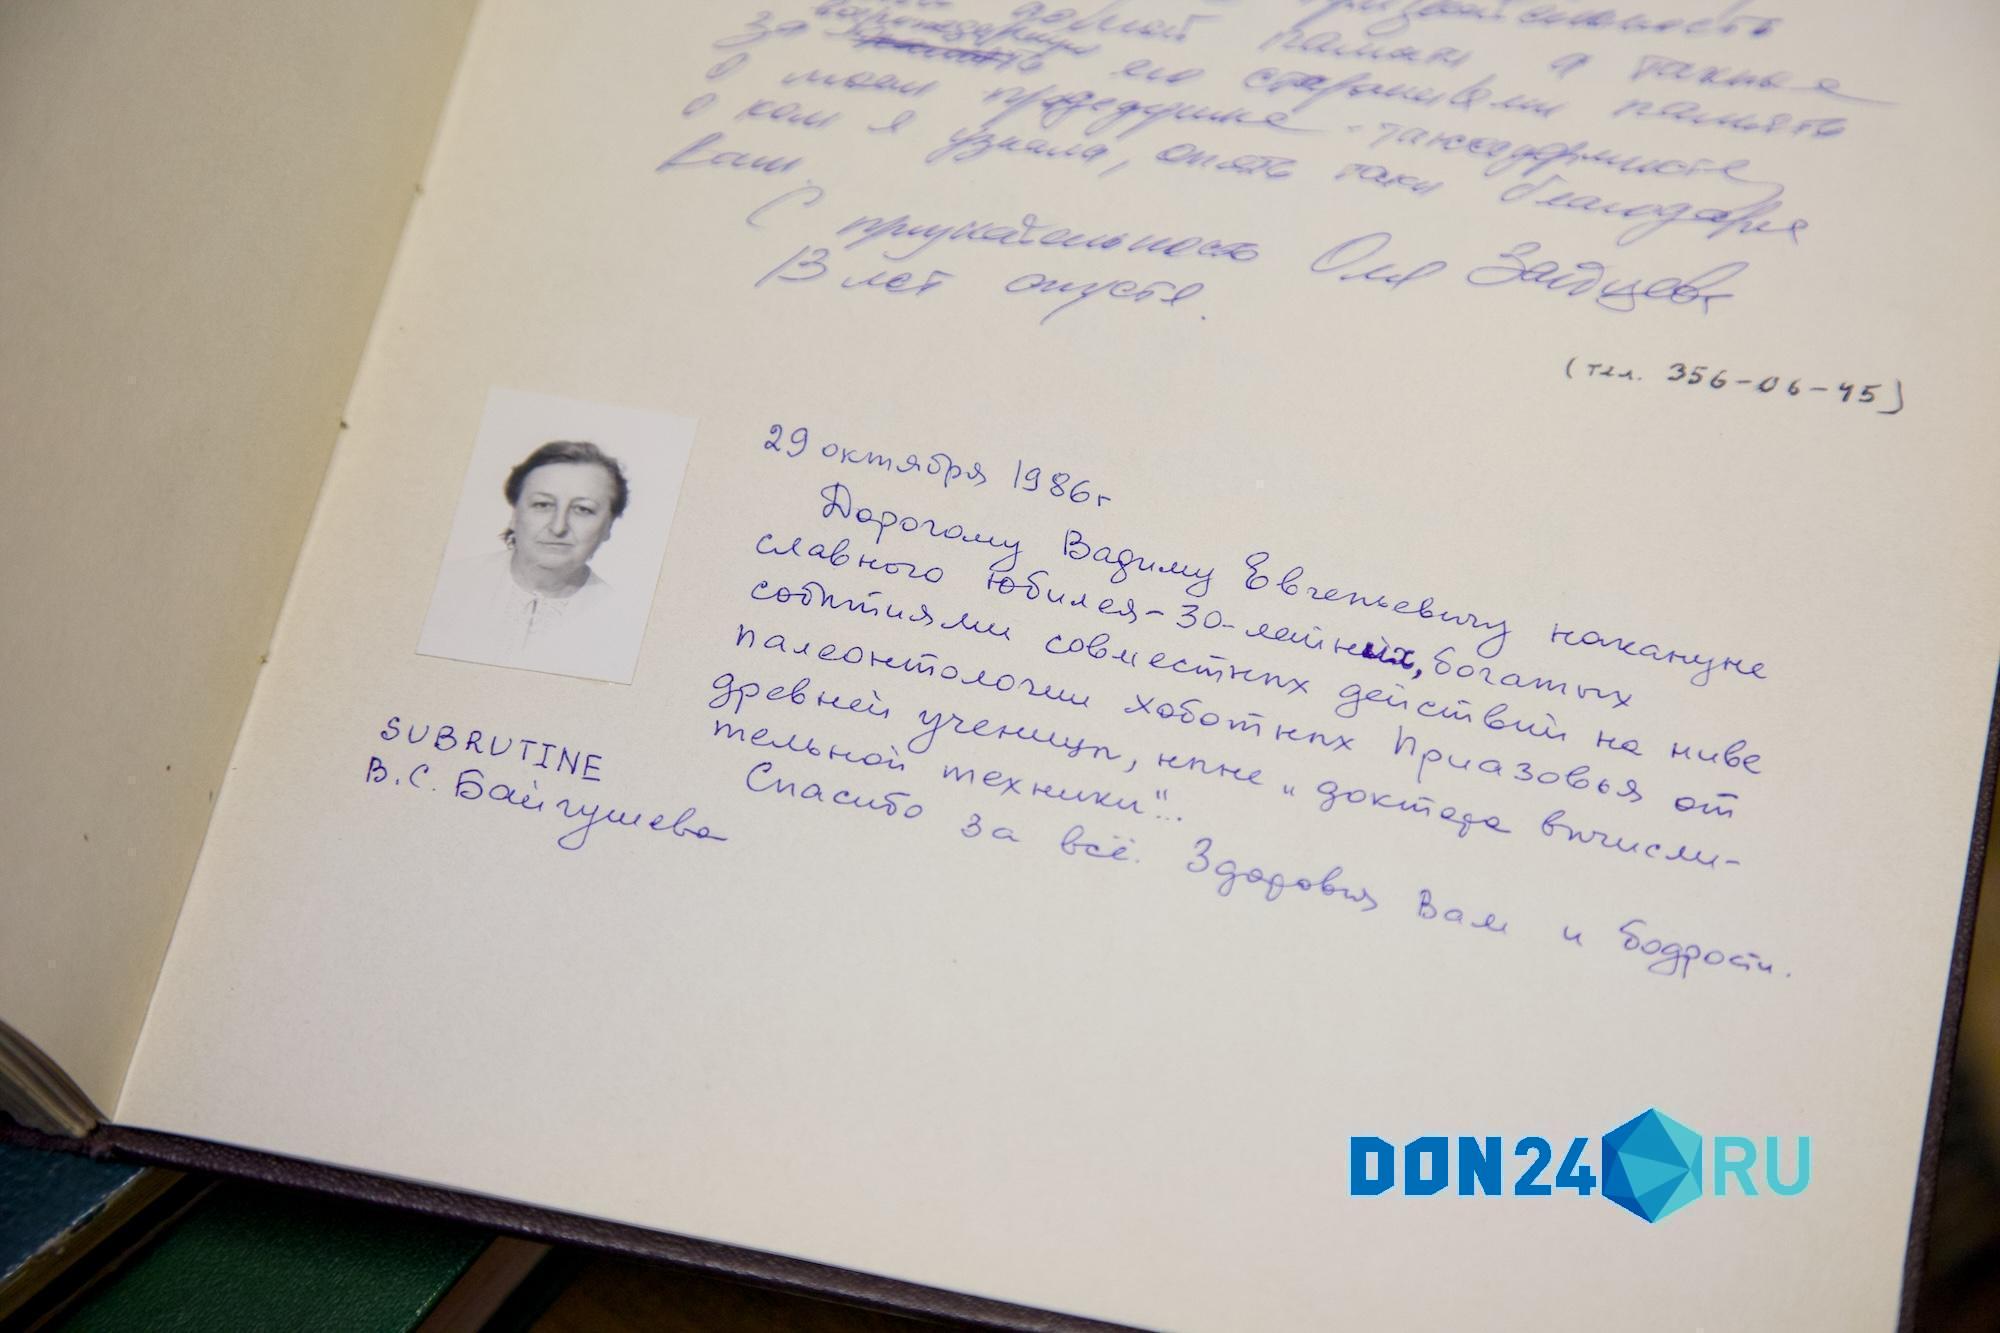 признательность
доброй памяти а также
за благодарную
его старшими память
о моем прадедушке - таксидермисте,
о ком я узнала, опять таки благодаря
Вам.
С признательностью Оля Зайцева
13 лет спустя.
(тел. 356-06-45)
29 октября 1986г
Дорогому Вадиму Евгеньевичу накануне
славного юбилея - 30-летних, богатых
событиями совместных действий на ниве
палеонтологии хоботных Приазовья от
древней ученицы, ныне "доктора вычисли-
тельной техники"...
Спасибо за всё. Здоровья Вам и бодрости.
SUBRUTINE
В.С. Байгушева
DON24.RU